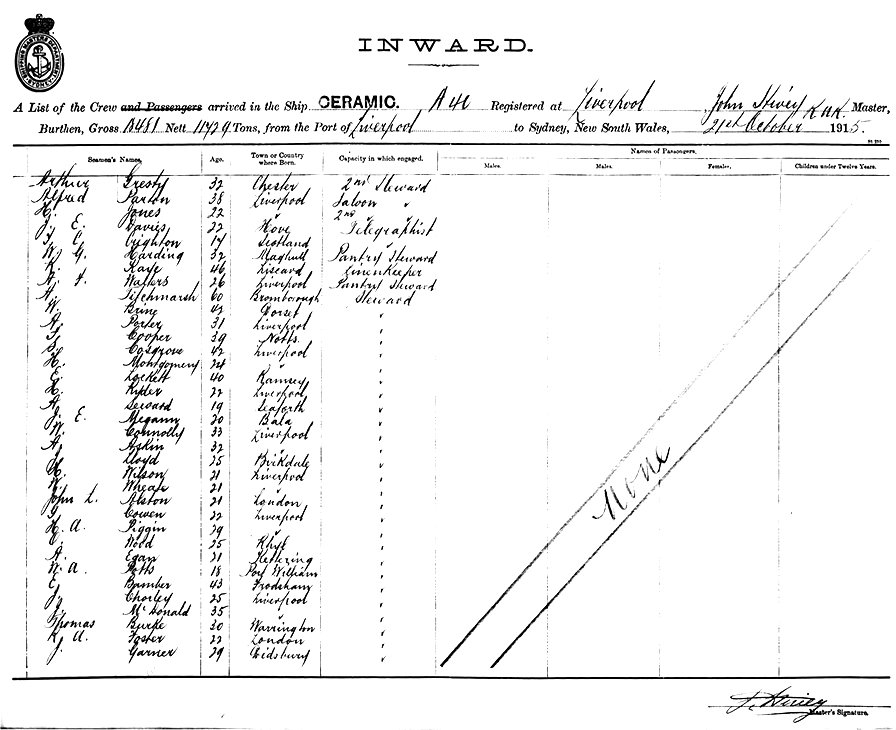 INWARD.
SHIPPING MASTERS DEPARTMENT SYDNEY
A List of the Crew and Passengers arrived in the Ship CERAMIC. A 40 Registered at Liverpool John Hivey R.N.R. Master,
Burthen, Gross Nett 11729 Tons, from the Port of Liverpool to Sydney, New South Wales, 21st October 1915.
Seamen's Names, Age. Town or Country where Born. Capacity in which engaged. Names of Passengers.
Males. Males. Females. Children under Twelve Years.
Arthur Gresty 32 Chester 2nd Steward
Alfred Parton 38 Liverpool Saloon "
H. Jones 22 " 2nd "
J. E. Davies 22 Hove Telegraphist
Crighton 17 Scotland "
W. G. Harding 32 Maghull Pantry Steward
Kaye 46 Liscard Linenkeeper
F. Walters 26 Liverpool Pantry Steward
Titchmarsh 60 Bromborough Steward
W. Brine 42 Dorset "
Porter 31 Liverpool "
Cooper 39 Notts "
Cosgrove 42 Liverpool "
H. Montgomery 24 " "
Lockett 40 Ramsey "
H. Ryder 22 Liverpool "
A. Seward 19 Seaforth "
J. E. Megann 20 Bala "
W. Connolly 33 Liverpool "
A. Askin 32 " "
J. Lloyd 25 Birkdale "
H. Wilson 21 Liverpool "
Wheate 21 " "
John L. Alston 21 London "
G. Cowen 22 Liverpool "
H. A. Piggin 29 " "
Wood 25 Rhyl "
A. Egan 21 Kettering "
W. A. Potts 18 Port William "
E. Bamber 43 Frodsham "
J. Chorley 25 Liverpool "
J. McDonald 35 " "
Thomas Burke 30 Warrington "
R. A. Foster 22 London "
J. Garner 29 Didsbury "
None
J. Hivey
Master's Signature.